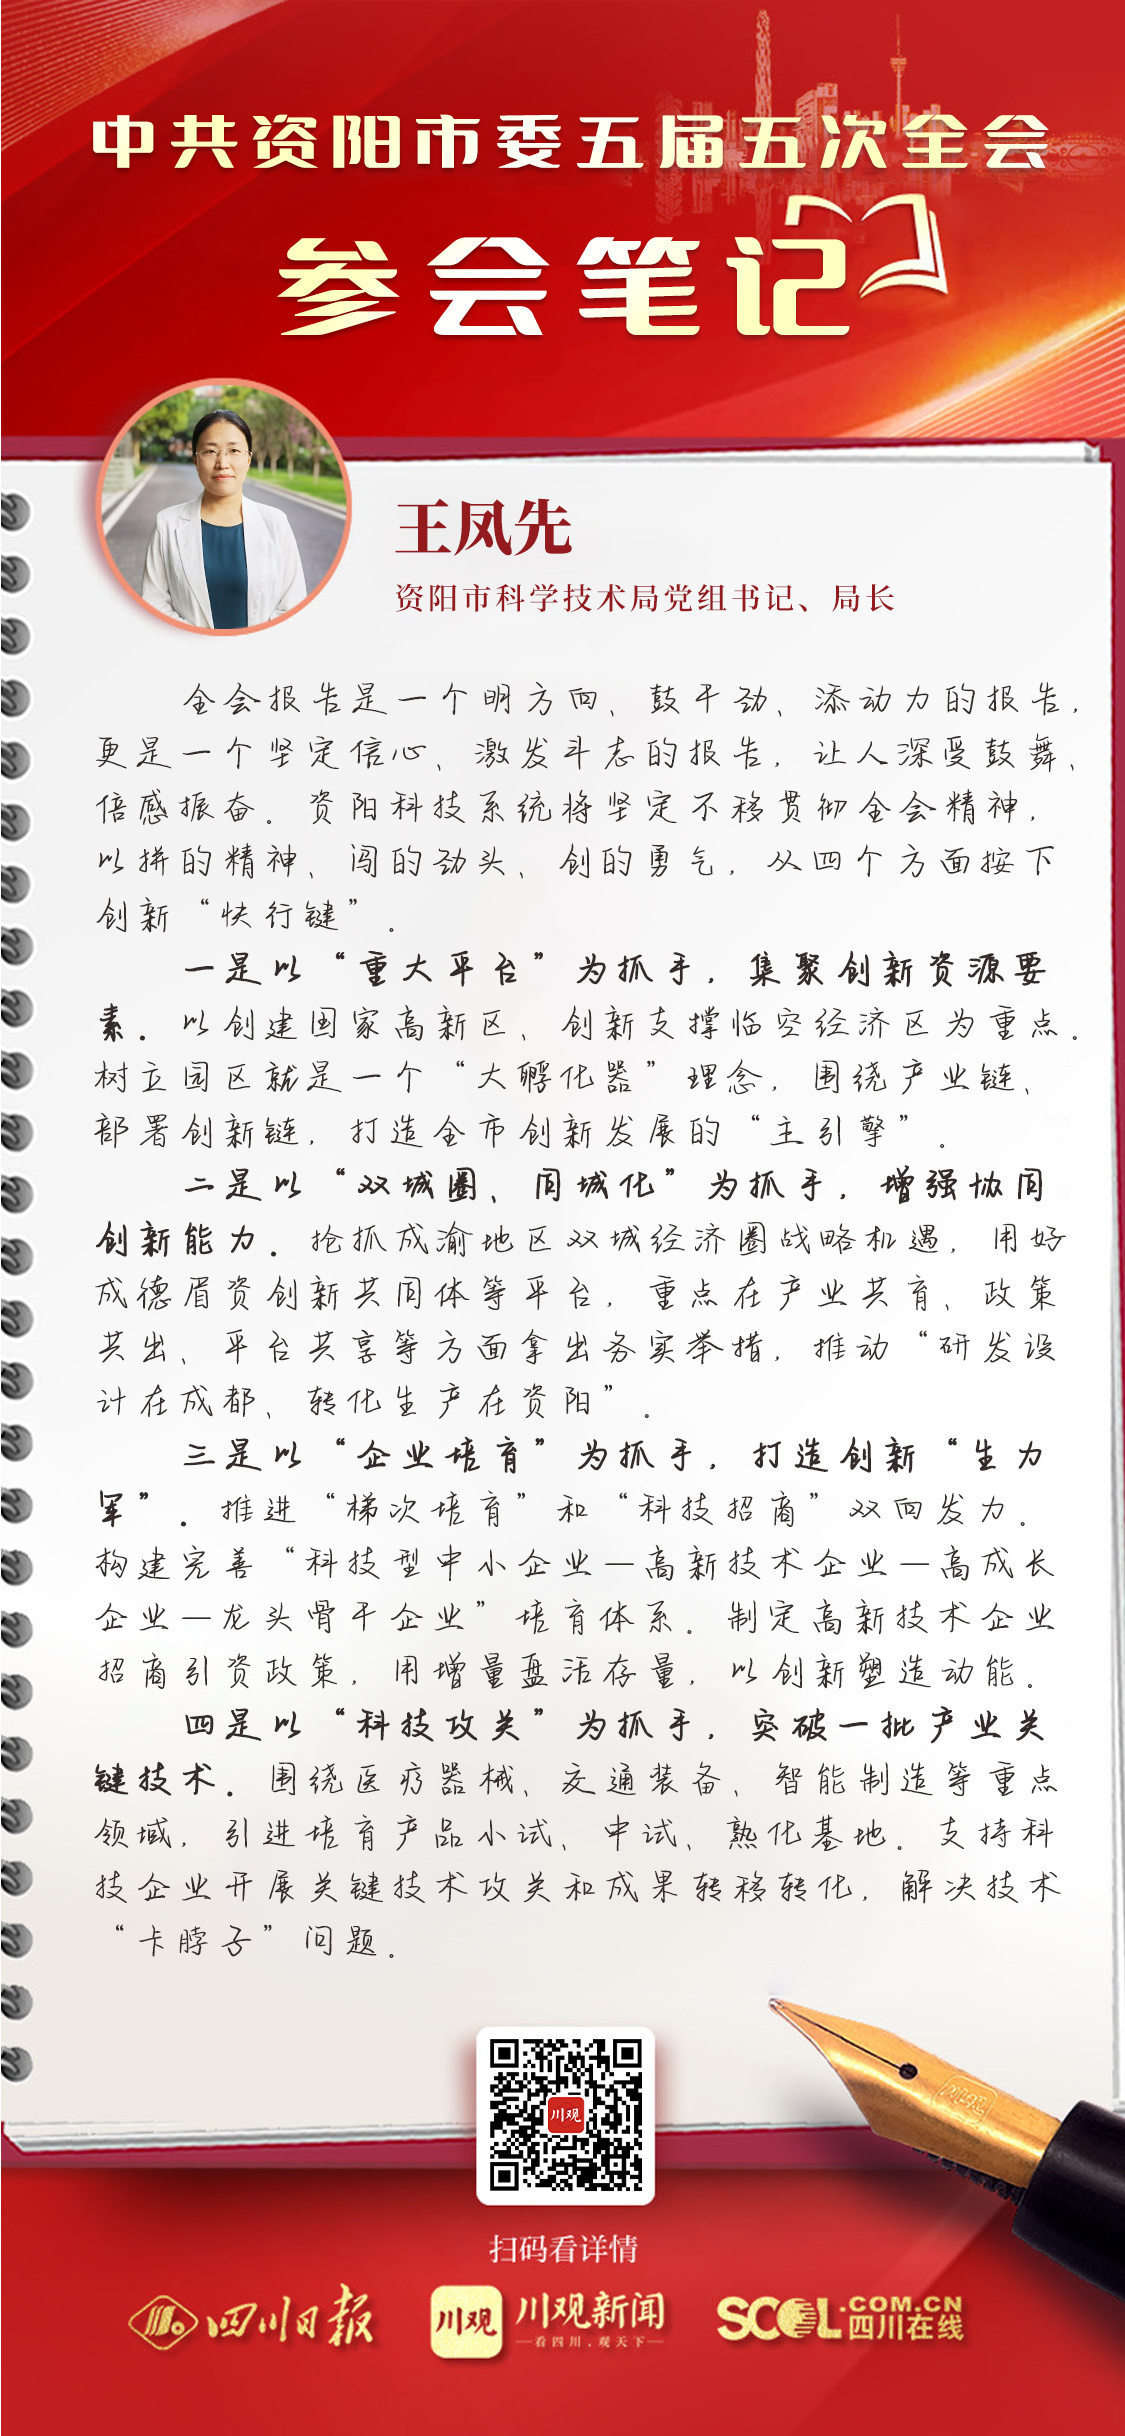 中共资阳市委五届五次全会
参会笔记
王凤先
资阳市科学技术局党组书记、局长
全会报告是一个明方向、鼓干劲、添动力的报告，
更是一个坚定信心、激发斗志的报告，让人深受鼓舞、
倍感振奋。资阳科技系统将坚定不移贯彻全会精神，
以拼的精神、闯的劲头、创的勇气，从四个方面按下
创新“快行键”。
一是以“重大平台”为抓手，集聚创新资源要
素。以创建国家高新区、创新支撑临空经济区为重点。
树立园区就是一个“大孵化器”理念，围绕产业链、
部署创新链，打造全市创新发展的“主引擎”。
二是以“双城圈、同城化”为抓手，增强协同
创新能力。抢抓成渝地区双城经济圈战略机遇，用好
成德眉资创新共同体等平台，重点在产业共育、政策
共出、平台共享等方面拿出务实举措，推动“研发设
计在成都、转化生产在资阳”。
三是以“企业培育”为抓手，打造创新“生力
军”。推进“梯次培育”和“科技招商”双向发力。
构建完善“科技型中小企业—高新技术企业—高成长
企业—龙头骨干企业”培育体系。制定高新技术企业
招商引资政策，用增量盘活存量，以创新塑造动能。
四是以“科技攻关”为抓手，突破一批产业关
键技术。围绕医疗器械、交通装备、智能制造等重点
领域，引进培育产品小试、中试、熟化基地。支持科
技企业开展关键技术攻关和成果转移转化，解决技术
“卡脖子”问题。
川观
扫码看详情
四川日报
川观
川观新闻
—看四川，观天下—
SCOL.COM.CN
四川在线